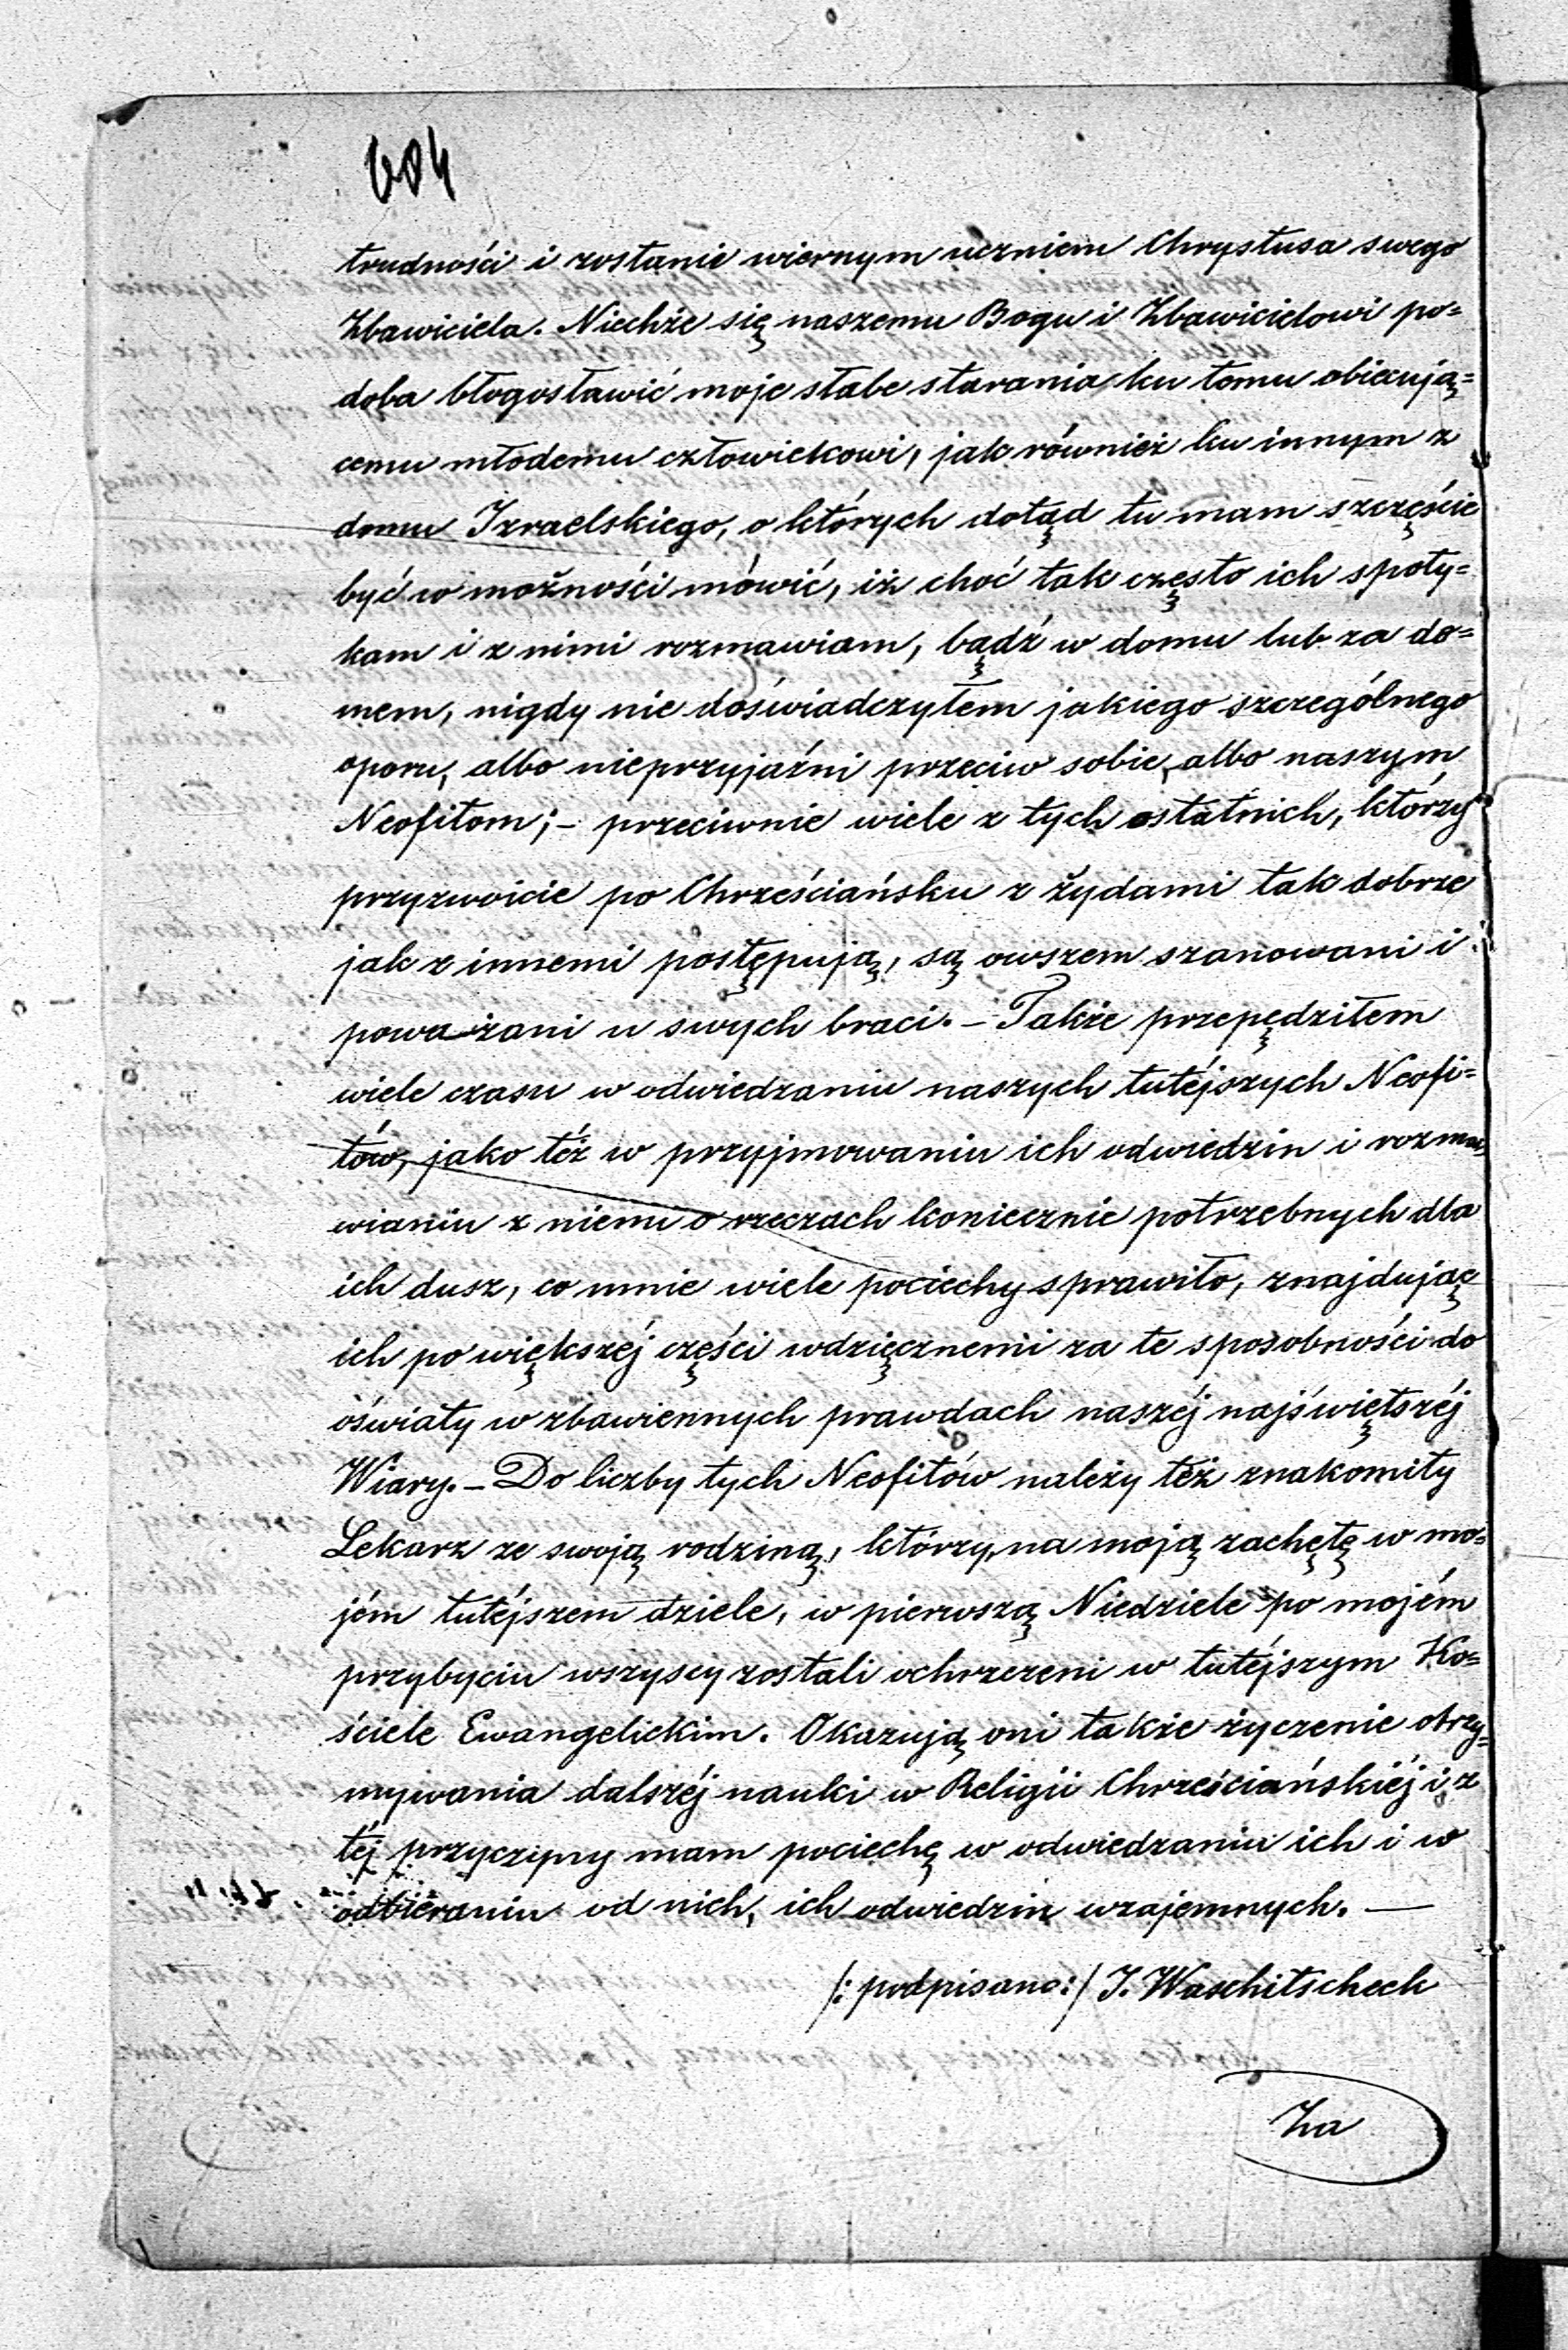 604
trudności i zostanie wiernym uczniem Chrystusa swego
Zbawiciela. Niechże się naszemu Bogu i Zbawicielowi po=
doba błogosławić moje słabe starania ku temu obiecują=
cemu młodemu człowiekowi, jak również ku innym z
domu Izraelskiego, o których dotąd tu mam szczęście
być w możności mówić, iż choć tak często ich spoty=
kam i z nimi rozmawiam, bądź w domu lub za do=
mem, nigdy nie doświadczyłem jakiego szczególnego
oporu, albo nieprzyjaźni przeciw sobie, albo naszym
Neofitom; – przeciwnie wiele z tych ostatnich, którzy
przyzwoicie po Chrześciańsku z żydami tak dobrze
jak z innemi postępują, są owszem szanowani i
poważani u swych braci. – Także przepędziłem
wiele czasu w odwiedzaniu naszych tutéjszych Neofi=
tów, jako téż w przyjmowaniu ich odwiedzin i rozma=
wianiu z niemi o rzeczach koniecznie potrzebnych dla
ich dusz, co mnie wiele pociechy sprawiło, znajdując
ich po większéj części wdzięcznemi za te sposobności do
oświaty w zbawiennych prawdach naszéj najświętszéj
Wiary. – Do liczby tych Neofitów należy téż znakomity
Lekarz ze swoją rodziną, którzy, na moją zachętę w mo=
jém tutéjszem dziele, w pierwszą Niedziele po mojém
przybyciu wszyscy zostali ochrzczeni w tutéjszym Ko=
ściele Ewangelickim. Okazują oni także życzenie otrzy=
mywania dalszéj nauki w Religii Chrześciańskiéj i z
téj przyczyny mam pociechę w odwiedzaniu ich i w
odbieraniu od nich, ich odwiedzin wzajemnych. —
/: podpisano :/ J. Waschitscheck
Za